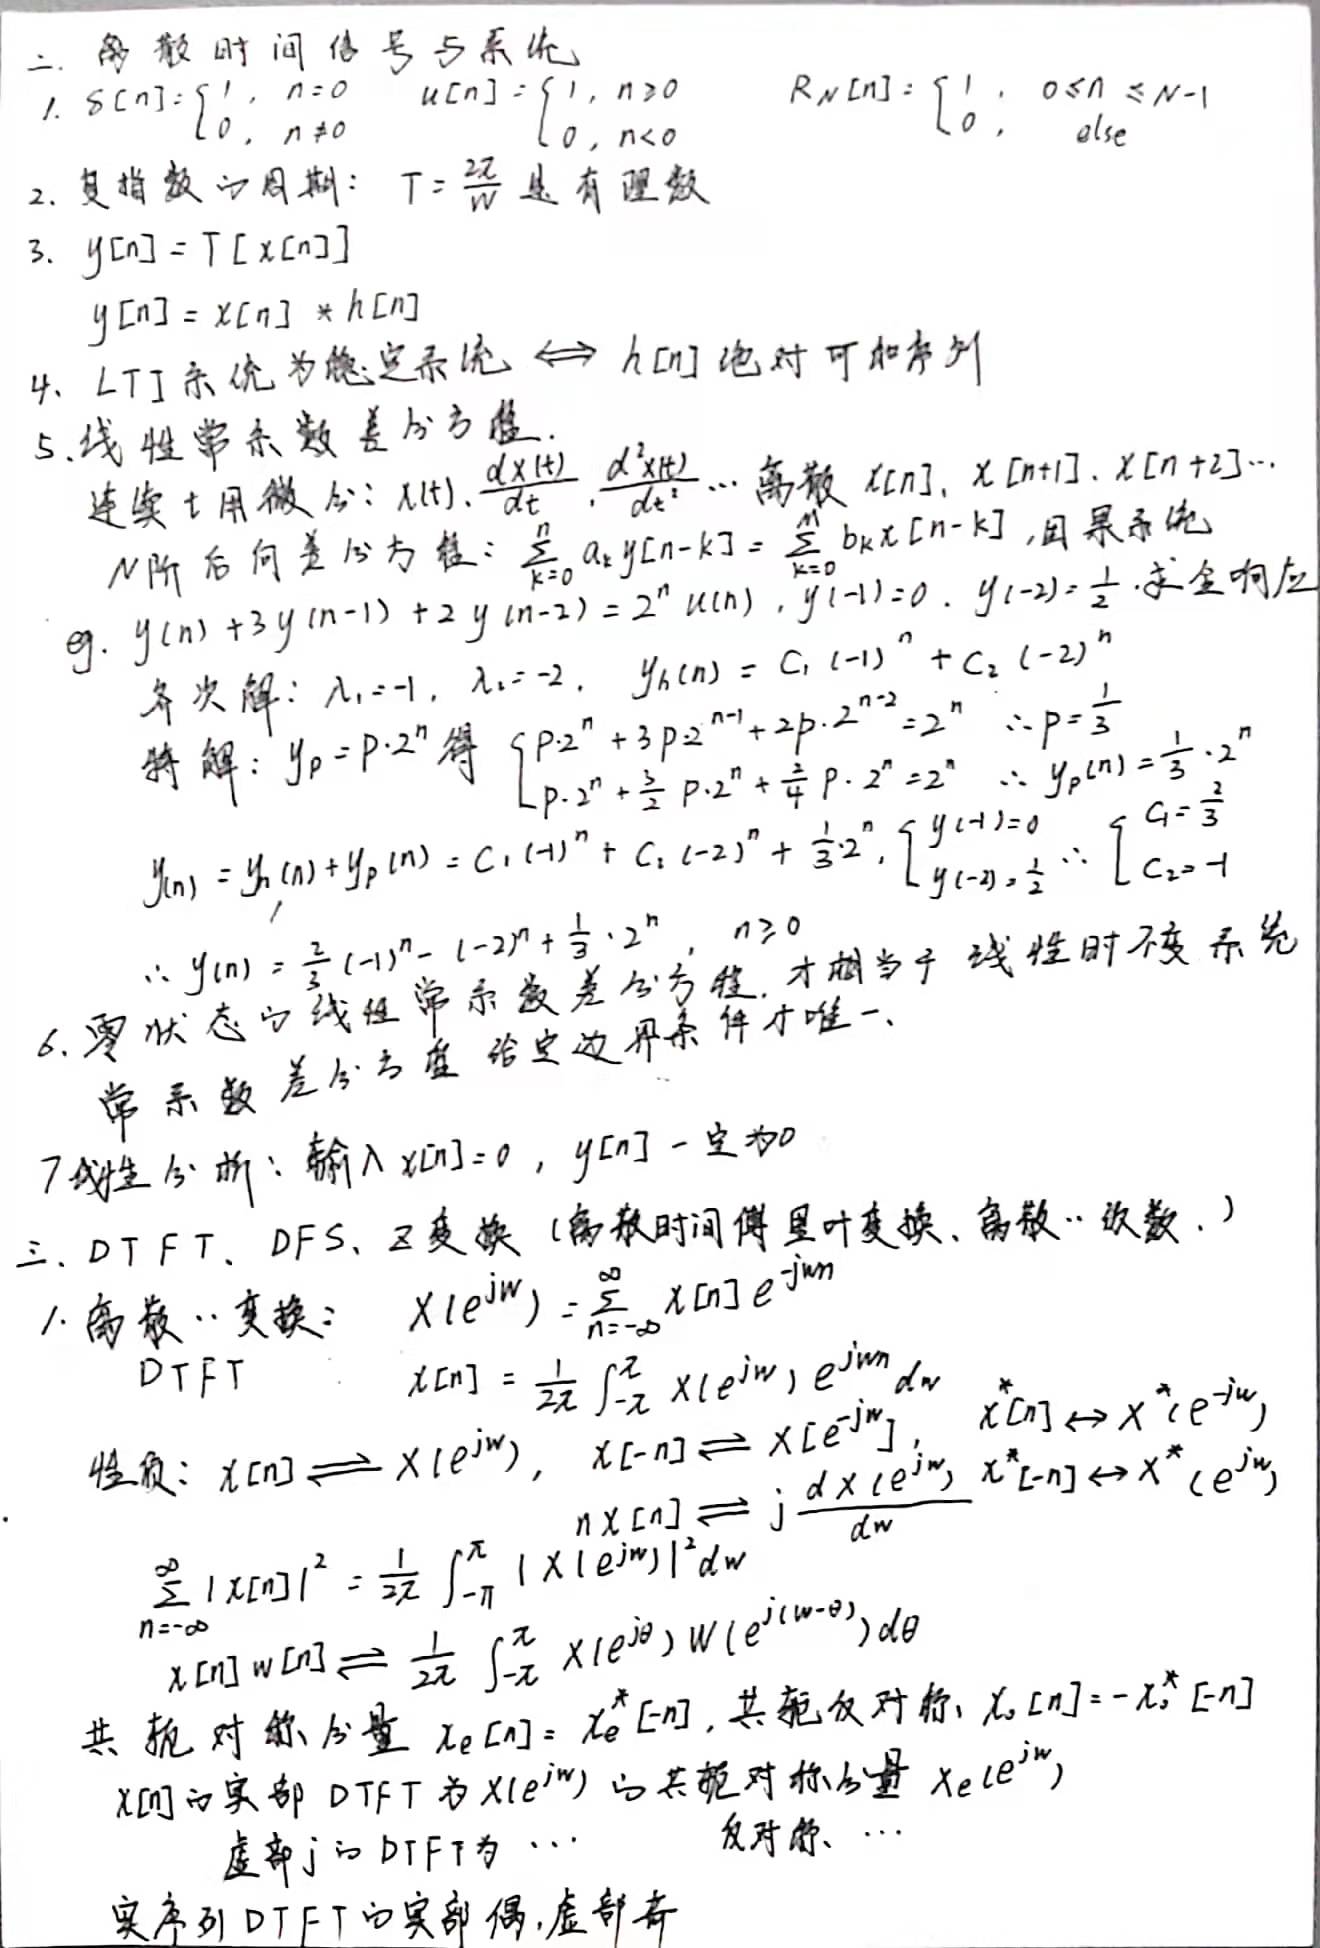 二. 离散时间信号与系统
1. δ[n]={1, n=0; 0, n≠0   u[n]={1, n≥0; 0, n<0   R_N[n]={1, 0≤n≤N-1; 0, else
2. 复指数的周期: T=2π/w 是有理数
3. y[n]=T[x[n]]
y[n]=x[n]*h[n]
4. LTI系统为稳定系统 ⇔ h[n]绝对可和序列
5. 线性常系数差分方程.
连续t用微分: x(t). dx(t)/dt . d²x(t)/dt² … 离散 x[n]. x[n+1]. x[n+2]…
N阶后向差分方程: Σ_{k=0}^{n} a_k y[n-k] = Σ_{k=0}^{M} b_k x[n-k], 因果系统
eg. y(n)+3y(n-1)+2y(n-2)=2^n u(n), y(-1)=0. y(-2)=1/2. 求全响应
齐次解: λ₁=-1, λ₂=-2, y_h(n)=C₁(-1)^n+C₂(-2)^n
特解: y_p=P·2^n 得 {P·2^n+3P·2^{n-1}+2P·2^{n-2}=2^n ∴P=1/3
P·2^n+3/2 P·2^n+2/4 P·2^n=2^n ∴ y_p(n)=1/3·2^n
y(n)=y_h(n)+y_p(n)=C₁(-1)^n+C₂(-2)^n+1/3·2^n, {y(-1)=0; y(-2)=1/2 ∴ {C₁=2/3; C₂=-1
∴ y(n)=2/3(-1)^n-(-2)^n+1/3·2^n, n≥0
6. 零状态的线性常系数差分方程. 才相当于线性时不变系统
常系数差分方程给定边界条件才唯一.
7 线性分析: 输入x[n]=0, y[n]一定为0
三. DTFT、DFS、Z变换 (离散时间傅里叶变换、离散‥级数.)
1. 离散‥变换: X(e^{jw})=Σ_{n=-∞}^{∞} x[n]e^{-jwn}
DTFT   x[n]=1/2π ∫_{-π}^{π} X(e^{jw})e^{jwn}dw
性质: x[n]⇌X(e^{jw}), x[-n]⇌X[e^{-jw}], x*[n]↔X*(e^{-jw})
nx[n]⇌j dX(e^{jw})/dw   x*[-n]↔X*(e^{jw})
Σ_{n=-∞}^{∞}|x[n]|²=1/2π ∫_{-π}^{π}|X(e^{jw})|²dw
x[n]w[n]⇌1/2π ∫_{-π}^{π} X(e^{jθ})W(e^{j(w-θ)})dθ
共轭对称分量 x_e[n]=x_e*[-n], 共轭反对称、x_o[n]=-x_o*[-n]
x[n]的实部DTFT为X(e^{jw})的共轭对称分量 X_e(e^{jw})
虚部j的DTFT为 … 反对称、…
实序列DTFT的实部偶,虚部奇